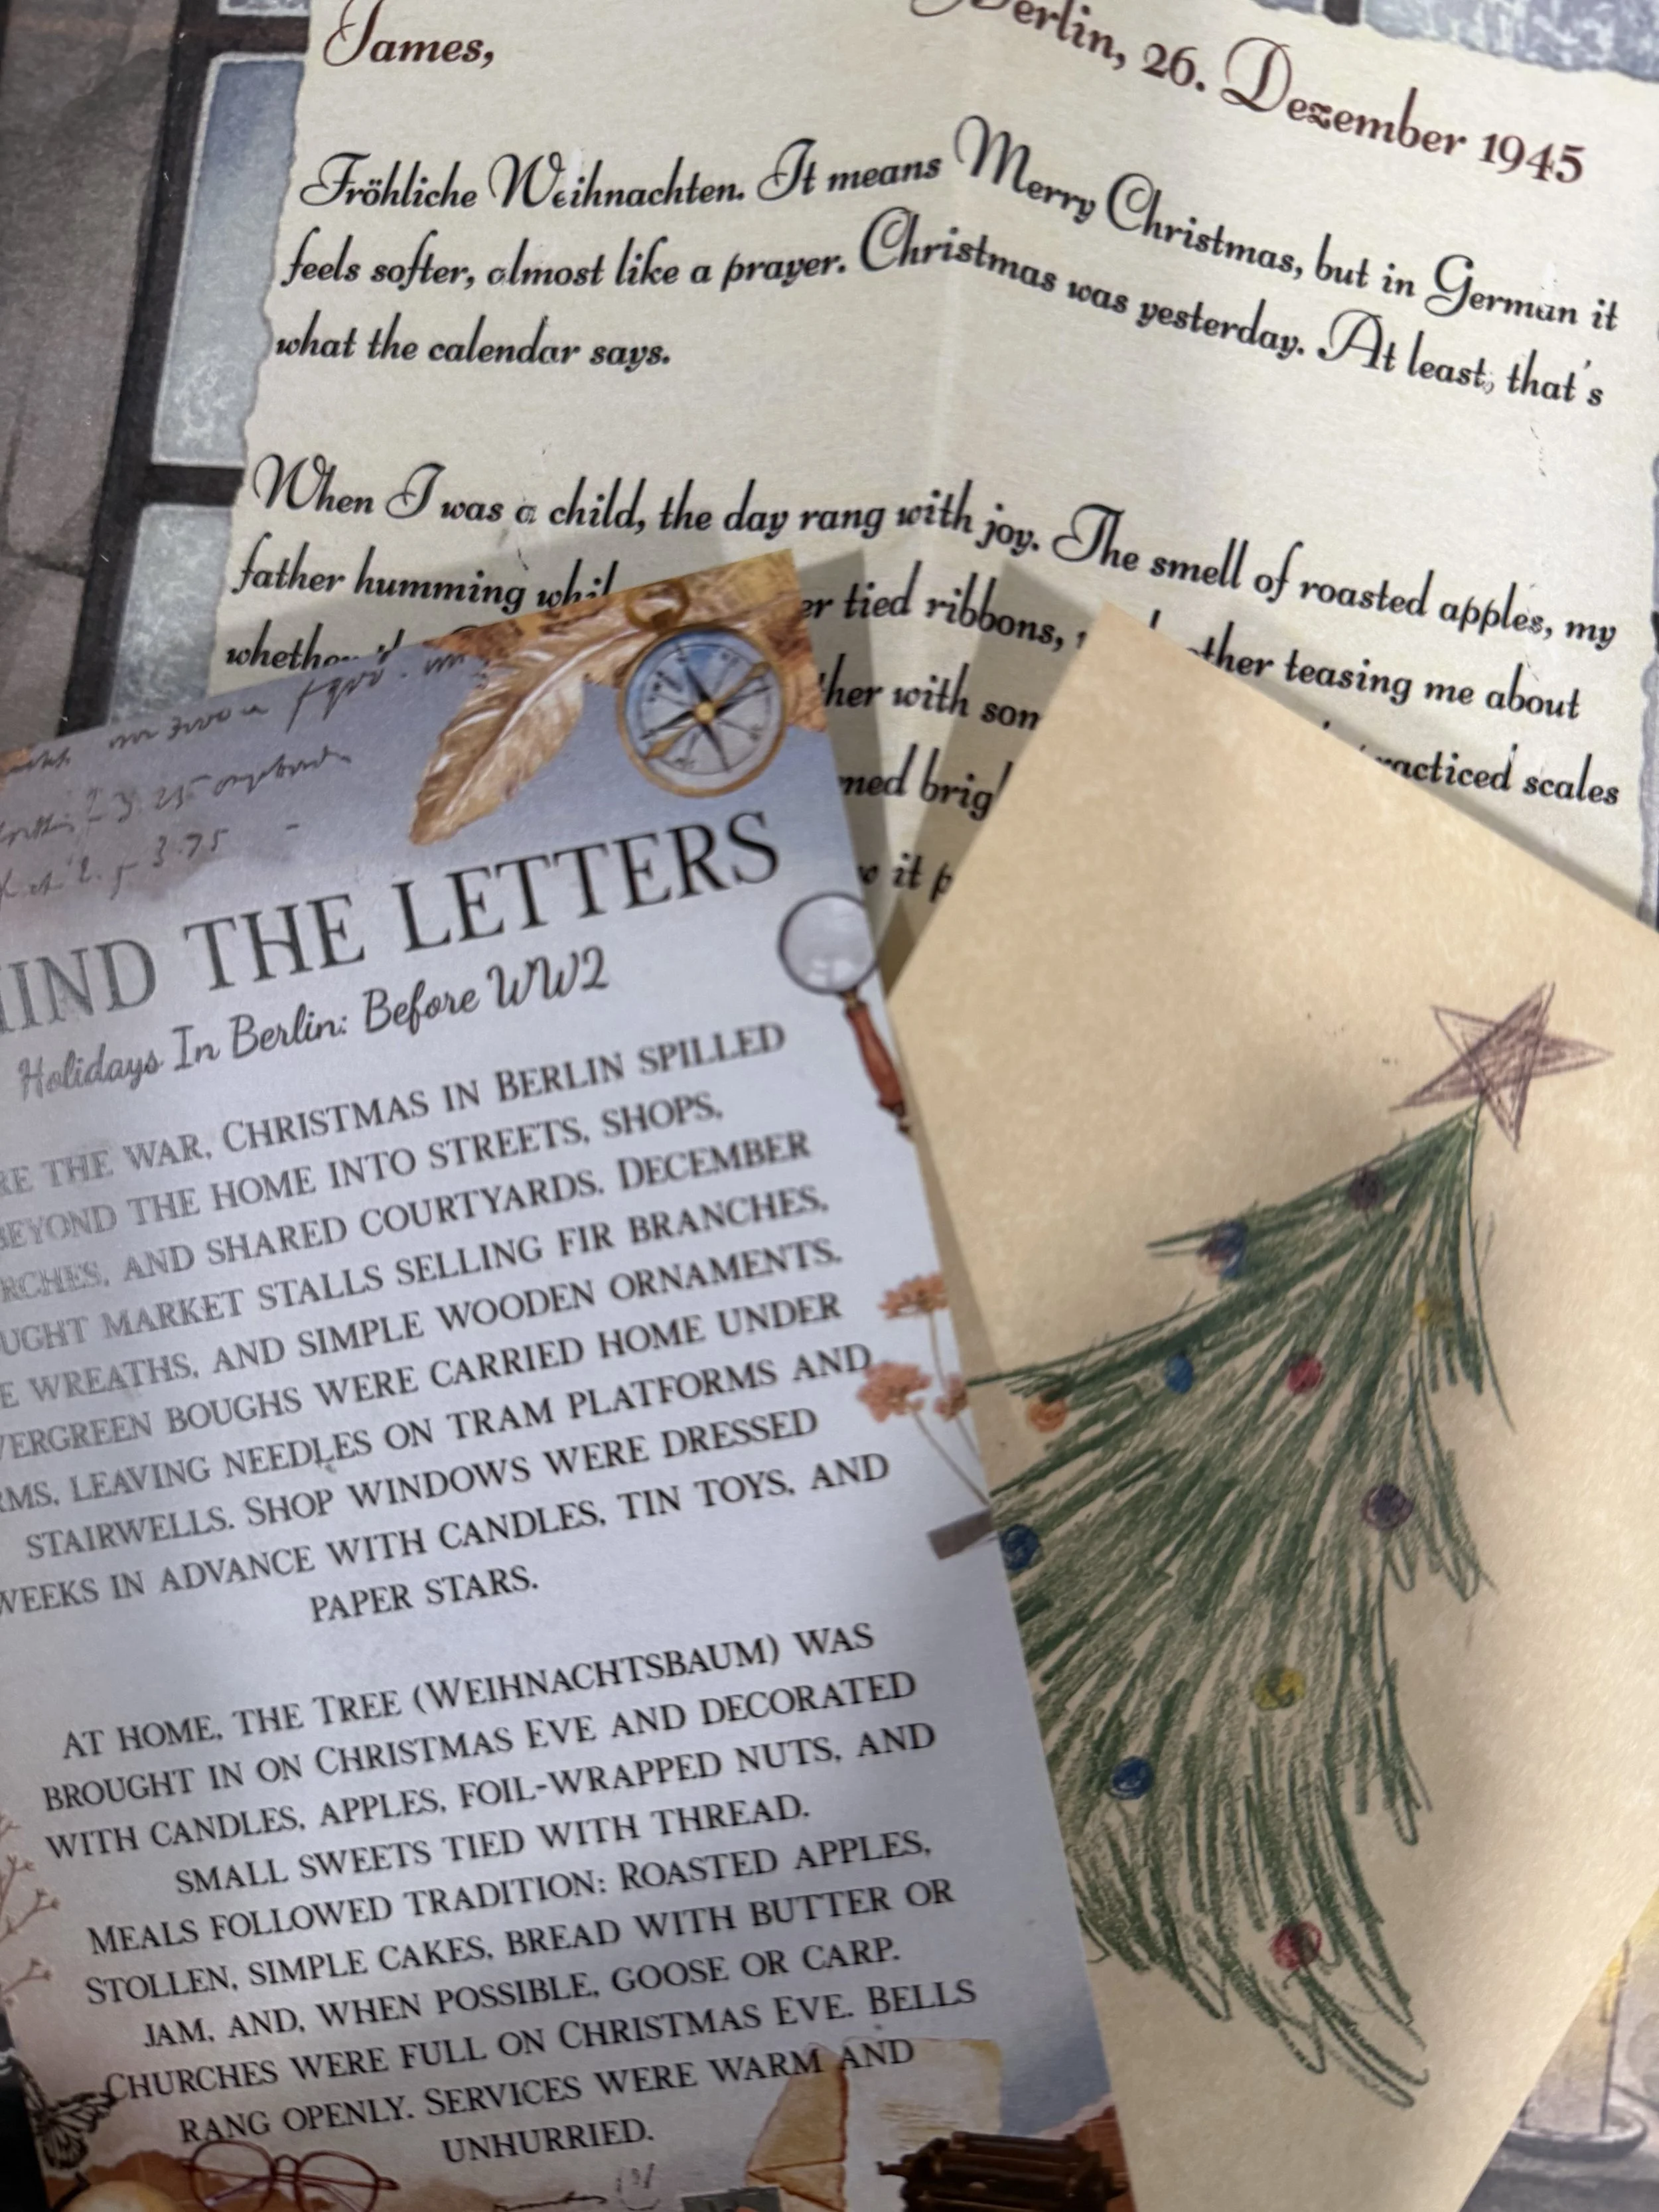 James,
Berlin, 26. Dezember 1945
Fröhliche Weihnachten. It means Merry Christmas, but in German it
feels softer, almost like a prayer. Christmas was yesterday. At least, that's
what the calendar says.
When I was a child, the day rang with joy. The smell of roasted apples, my
father humming tied ribbons, teasing me about
with practiced scales
it
THE LETTERS
Holidays In Berlin: Before WW2
THE WAR, CHRISTMAS IN BERLIN SPILLED
BEYOND THE HOME INTO STREETS, SHOPS,
AND SHARED COURTYARDS. DECEMBER
MARKET STALLS SELLING FIR BRANCHES,
WREATHS, AND SIMPLE WOODEN ORNAMENTS.
EVERGREEN BOUGHS WERE CARRIED HOME UNDER
LEAVING NEEDLES ON TRAM PLATFORMS AND
STAIRWELLS. SHOP WINDOWS WERE DRESSED
WEEKS IN ADVANCE WITH CANDLES, TIN TOYS, AND
PAPER STARS.
AT HOME, THE TREE (WEIHNACHTSBAUM) WAS
BROUGHT IN ON CHRISTMAS EVE AND DECORATED
WITH CANDLES, APPLES, FOIL-WRAPPED NUTS, AND
SMALL SWEETS TIED WITH THREAD.
MEALS FOLLOWED TRADITION: ROASTED APPLES,
STOLLEN, SIMPLE CAKES, BREAD WITH BUTTER OR
JAM, AND, WHEN POSSIBLE, GOOSE OR CARP.
CHURCHES WERE FULL ON CHRISTMAS EVE. BELLS
RANG OPENLY. SERVICES WERE WARM AND
UNHURRIED.